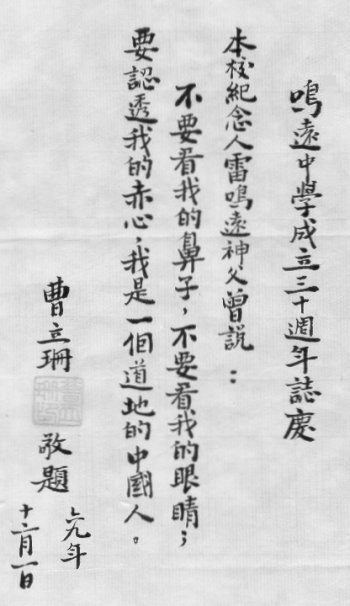 鳴遠中學成立三十週年誌慶
本校紀念人雷鳴遠神父曾說：
不要看我的鼻子，不要看我的眼睛；
要認透我的赤心，我是一個道地的中國人。
曹立珊
敬題
六九年
十二月一日